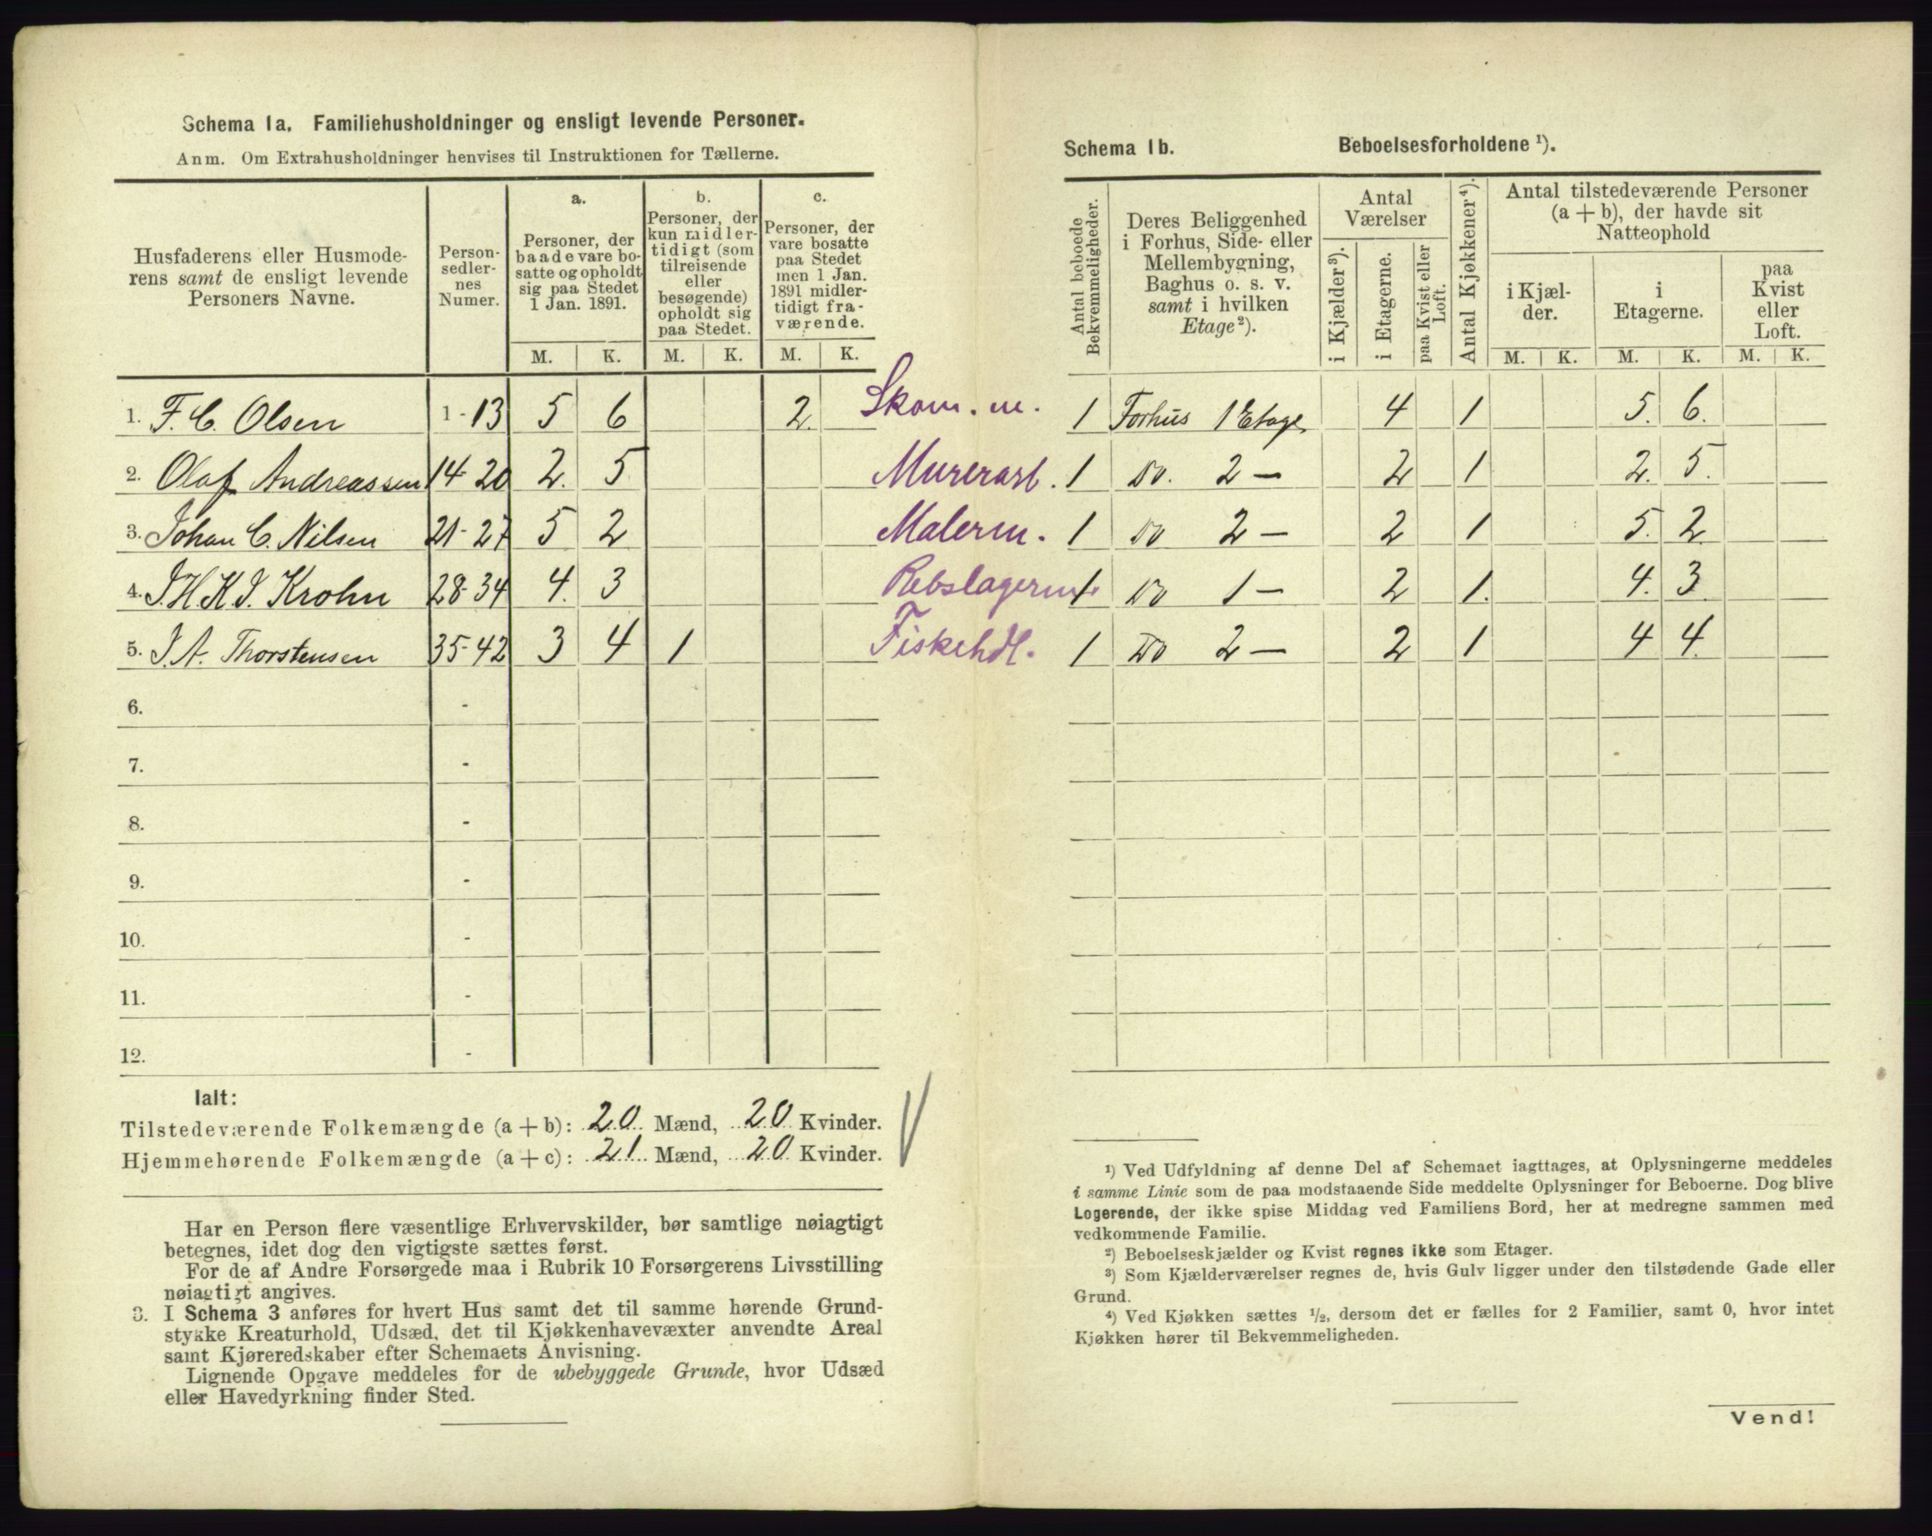 Schema 1a. Familiehusholdninger og ensligt levende Personer.
Anm. Om Extrahusholdninger henvises til Instruktionen for Tællerne.
Husfaderens eller Husmode-
rens samt de ensligt levende
Personers Navne.
Person-
sedler-
nes
Numer.
a.
Personer, der
baade vare bo-
satte og opholdt
sig paa Stedet
1 Jan. 1891.
b.
Personer, der
kun midler-
tidigt (som
tilreisende
eller
besøgende)
opholdt sig
paa Stedet.
c.
Personer, der
vare bosatte
paa Stedet
men 1 Jan.
1891 midler-
tidigt fra-
værende.
M. K. M. K. M. K.
1. F. C. Olsen 1-13 5 6 2. Skom. m.
2. Olaf Andreassen 14-20 2. 5 Murerarb.
3. Johan C. Nilsen 21-27 5 2 Malerm.
4. J. H. K. J. Krohn 28-34 4. 3 Rebslagerm.
5. J. A. Thorstensen 35-42 3 4 1 Fiskehdl.
6. -
7. -
8. -
9. -
10. -
11. -
12. -
Ialt:
Tilstedeværende Folkemængde (a + b): 20 Mænd, 20 Kvinder.
Hjemmehørende Folkemængde (a + c): 21 Mænd, 20 Kvinder.
Har en Person flere væsentlige Erhvervskilder, bør samtlige nøiagtigt
betegnes, idet dog den vigtigste sættes først.
For de af Andre Forsørgede maa i Rubrik 10 Forsørgerens Livsstilling
nøiagtigt angives.
3. I Schema 3 anføres for hvert Hus samt det til samme hørende Grund-
stykke Kreaturhold, Udsæd, det til Kjøkkenhavevæxter anvendte Areal
samt Kjøreredskaber efter Schemaets Anvisning.
Lignende Opgave meddeles for de ubebyggede Grunde, hvor Udsæd
eller Havedyrkning finder Sted.
Schema 1b. Beboelsesforholdene ¹).
Antal beboede
Bekvemmeligheder.
Deres Beliggenhed
i Forhus, Side- eller
Mellembygning,
Baghus o. s. v.
samt i hvilken
Etage²).
Antal
Værelser
i Kjælder³).
i Etagerne.
paa Kvist eller
Loft.
Antal Kjøkkener⁴).
Antal tilstedeværende Personer
(a + b), der havde sit
Natteophold
i Kjæl-
der.
i
Etagerne.
paa
Kvist
eller
Loft.
M. K. M. K. M. K.
1 Forhus 1 Etage 4 1 5. 6.
1 Do. 2 — 2 1 2. 5.
1 Do 2 — 2 1 5. 2.
1 Do 1 — 2 1. 4. 3.
1 Do 2 — 2 1 4 4.
¹) Ved Udfyldning af denne Del af Schemaet iagttages, at Oplysningerne meddeles
i samme Linie som de paa modstaaende Side meddelte Oplysninger for Beboerne. Dog blive
Logerende, der ikke spise Middag ved Familiens Bord, her at medregne sammen med
vedkommende Familie.
²) Beboelseskjælder og Kvist regnes ikke som Etager.
³) Som Kjælderværelser regnes de, hvis Gulv ligger under den tilstødende Gade eller
Grund.
⁴) Ved Kjøkken sættes ½, dersom det er fælles for 2 Familier, samt 0, hvor intet
Kjøkken hører til Bekvemmeligheden.
Vend!